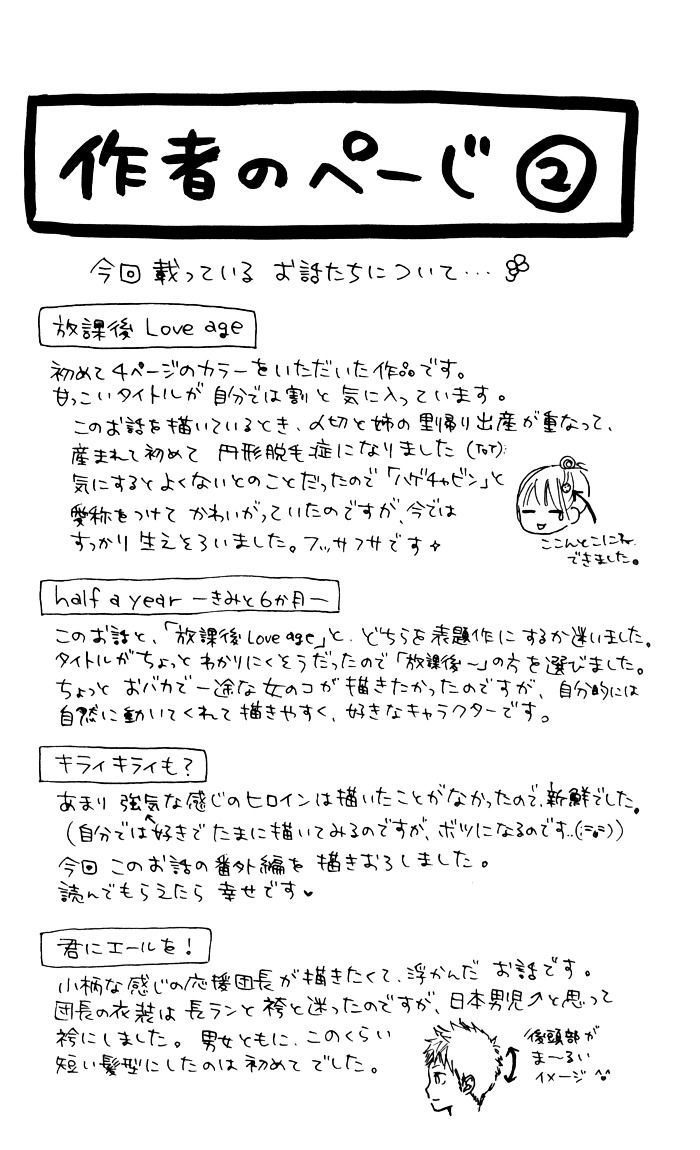 作者のぺーじ②
今回 載っている お話たちについて・・・
放課後 Love age
初めて4ページのカラーをいただいた作品です。
甘っこいタイトルが自分では割と気に入っています。
このお話を描いているとき、〆切と姉の里帰り出産が重なって、
産まれて初めて 円形脱毛症になりました (ToT);
気にするとよくないとのことだったので「ハゲチャビン」と
愛称をつけて かわいがっていたのですが、今では
すっかり生えそろいました。フッサフサです
ここんとこにね、
できました。
half a year ーきみと6か月ー
このお話と、「放課後Love age」と、どちらを表題作にするか迷いました。
タイトルがちょっとわかりにくそうだったので「放課後～」の方を選びました。
ちょっと おバカで一途な女のコが描きたかったのですが、自分的には
自然に動いてくれて描きやすく、好きなキャラクターです。
キライキライも?
あまり 強気な感じのヒロインは描いたことがなかったので、新鮮でした。
(自分では好きで たまに描いてみるのですが、ボツになるのです‥
今回 このお話の番外編を 描きおろしました。
読んでもらえたら 幸せです♥
君にエールを!
小柄な感じの応援団長が描きたくて、浮かんだ お話です。
団長の衣装は 長ランと 袴と迷ったのですが、日本男児↗と思って
袴にしました。男女ともに、このくらい
短い髪型にしたのは 初めて でした。
後頭部が
ま～るい
イメージ